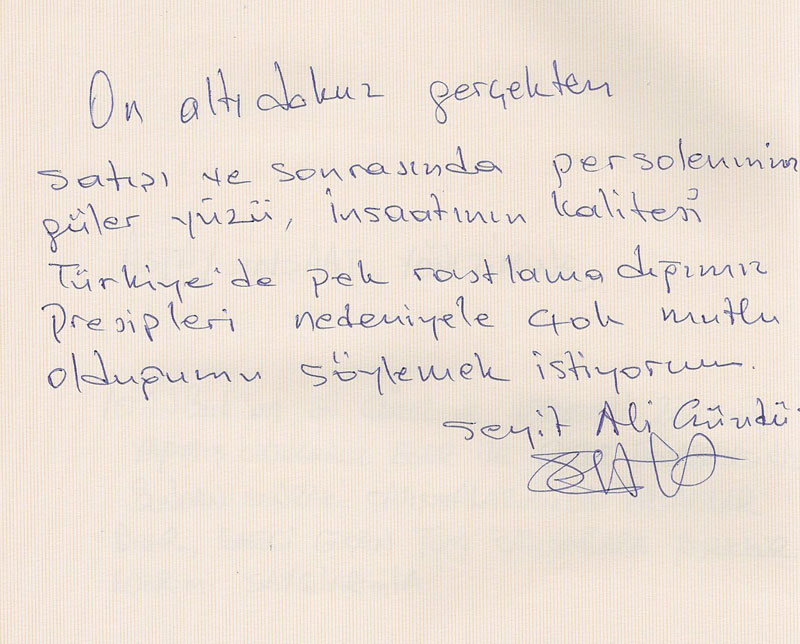 On altı dokuz gerçekten
satışı ve sonrasında persoleninin
güler yüzü, İnsaatının kalitesi
Türkiye'de pek rastlamadığımız
Presipleri nedeniyele çok mutlu
olduğumu söylemek istiyorum.
Seyit Ali Gündü